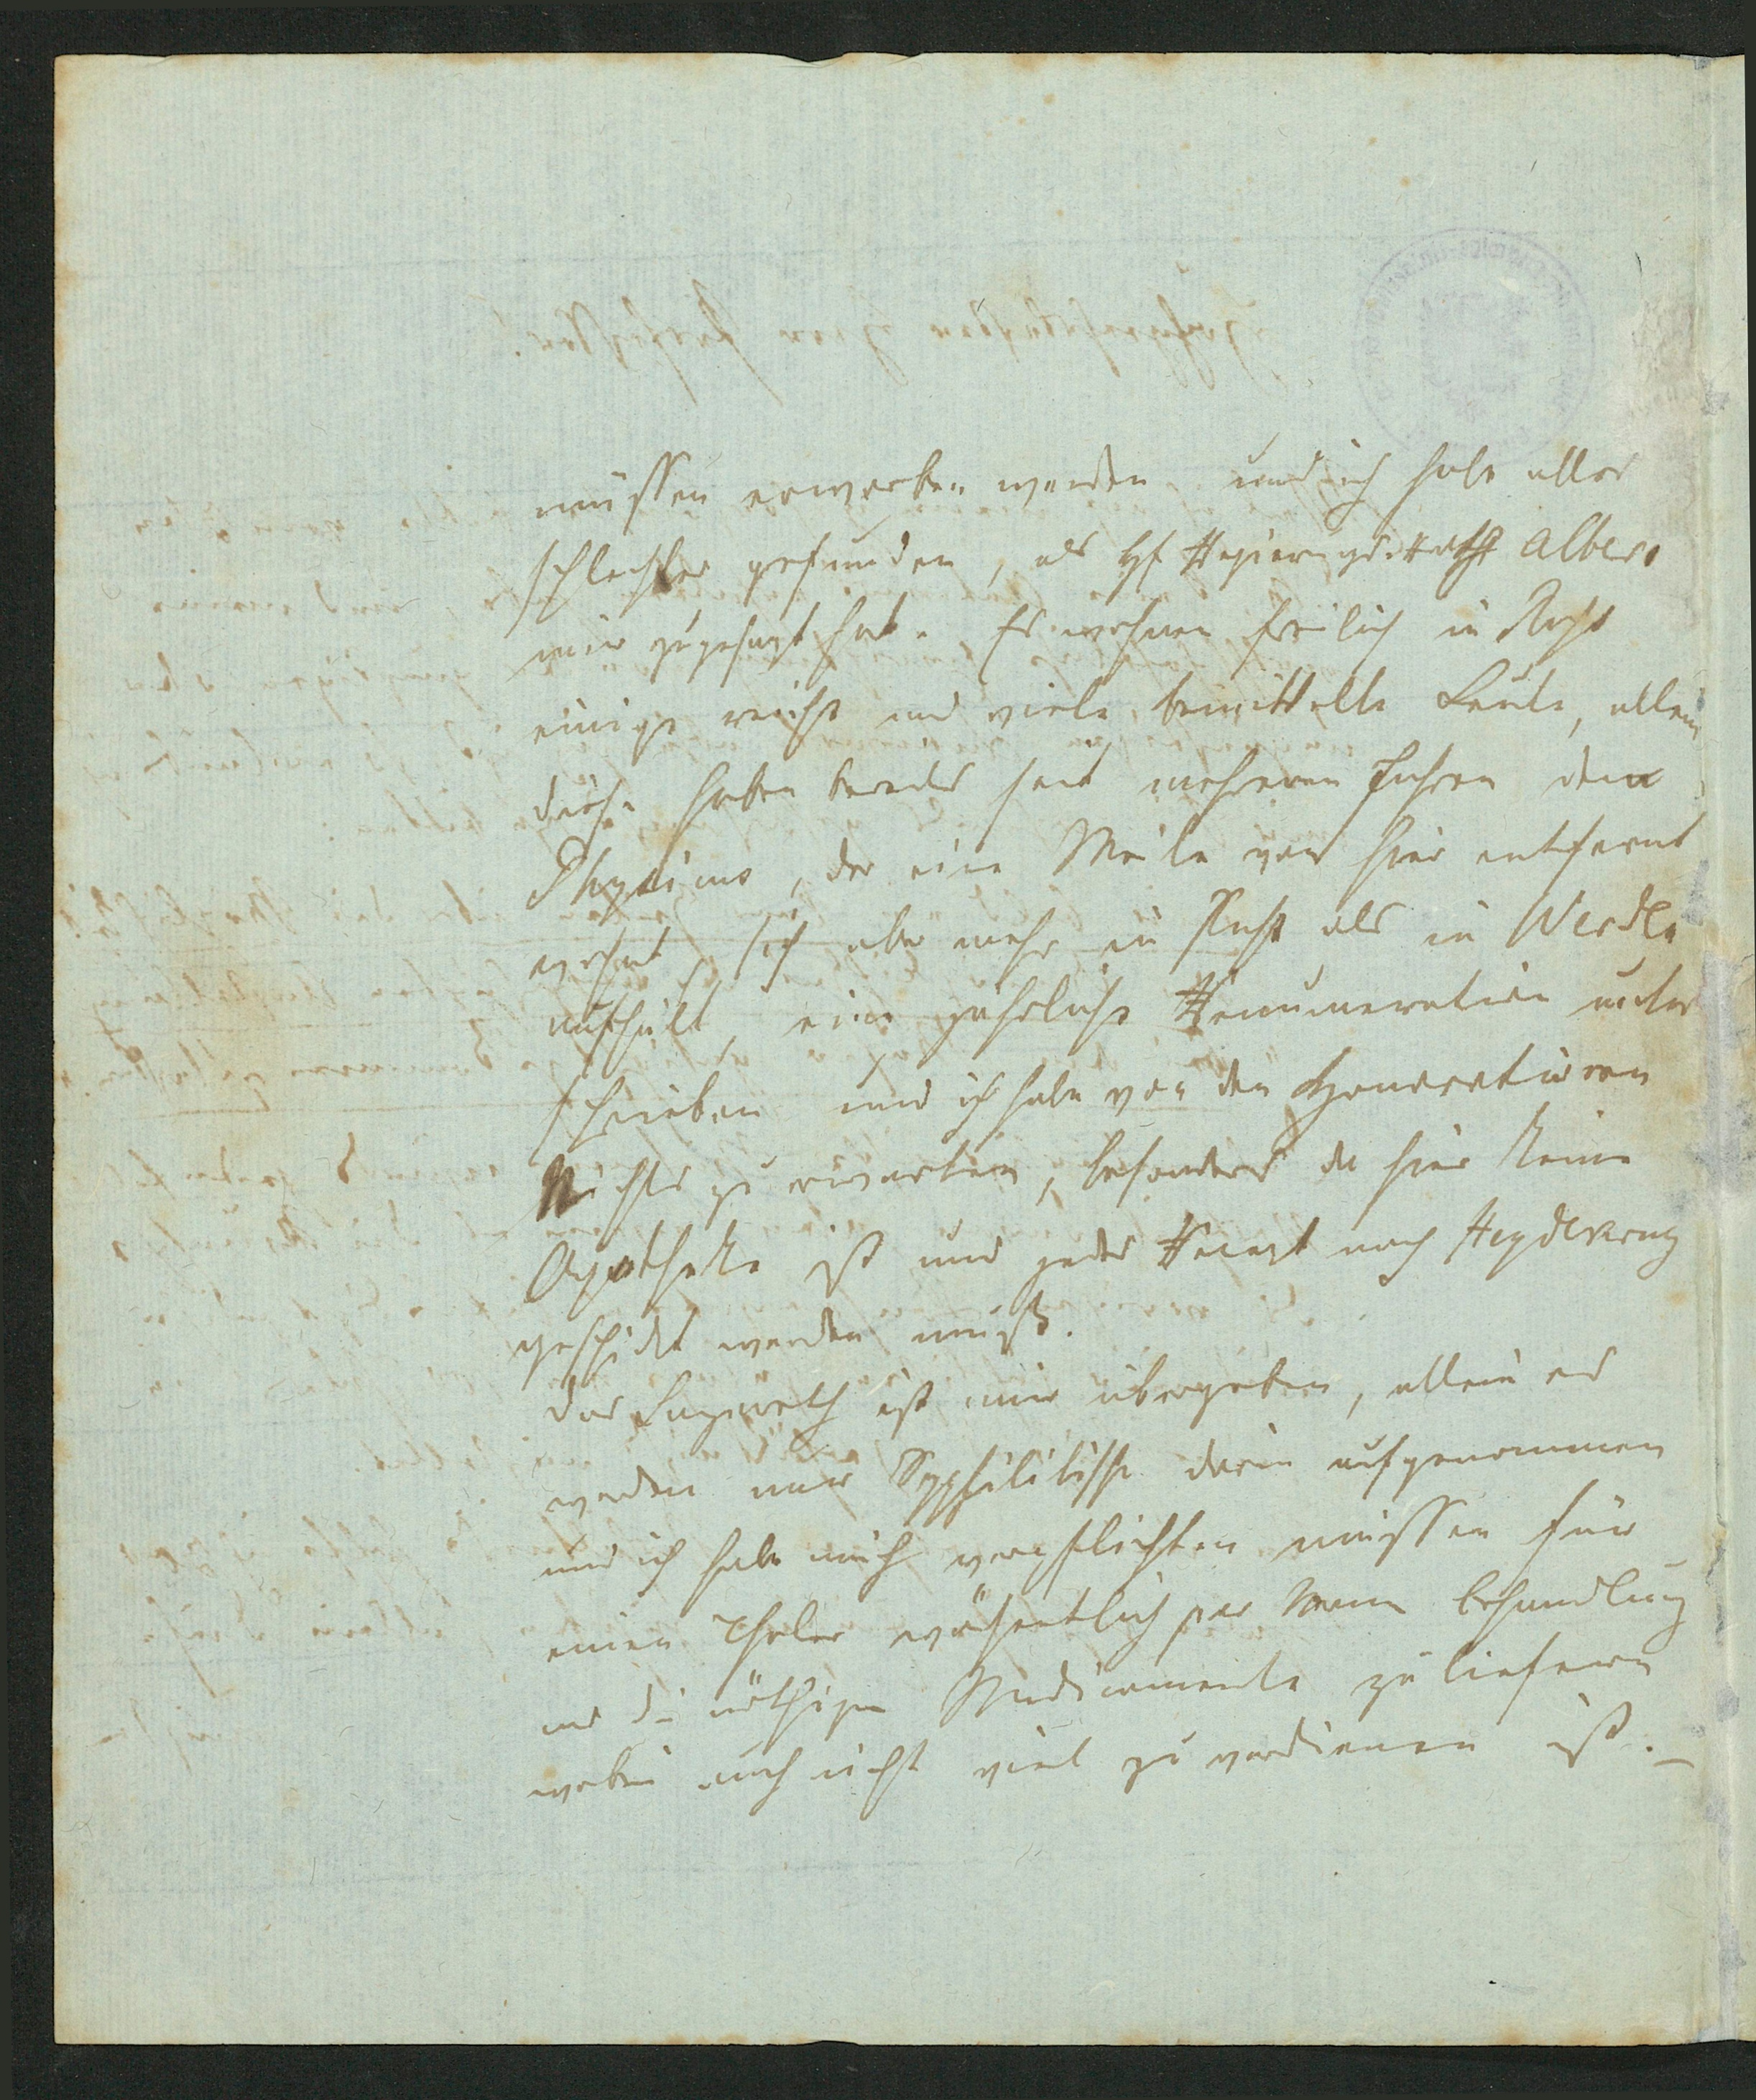 müssen erworben werden und ich habe alles
schlechter gefunden, als H. Regierungsrath Albers
mir zugesagt hat. Es wohnen freilich in Ruß
einige reiche und viele bemittelte Leute, allein
diese haben bereits seit mehreren Jahren dem
Physicus, der eine Meile von hier entfernt
wohnt, sich aber mehr in Ruß als in Werdle
aufhält, eine jährliche Renumeration unter
schrieben und ich habe von den Honoratioren
Nichts zu erwarten, besonders da hier keine
Apotheke ist und jedes Recept nach Heydekrug
geschickt werden muß.
Das Lazareth ist mir übergeben, allein es
werden nur Syphilitische darin aufgenommen
und ich habe mich verpflichten müssen für
einen Thaler wöchentlich per Mann Behandlung
und die nöthigen Medicamente zu liefern
wobei auch nicht viel zu verdienen ist. –